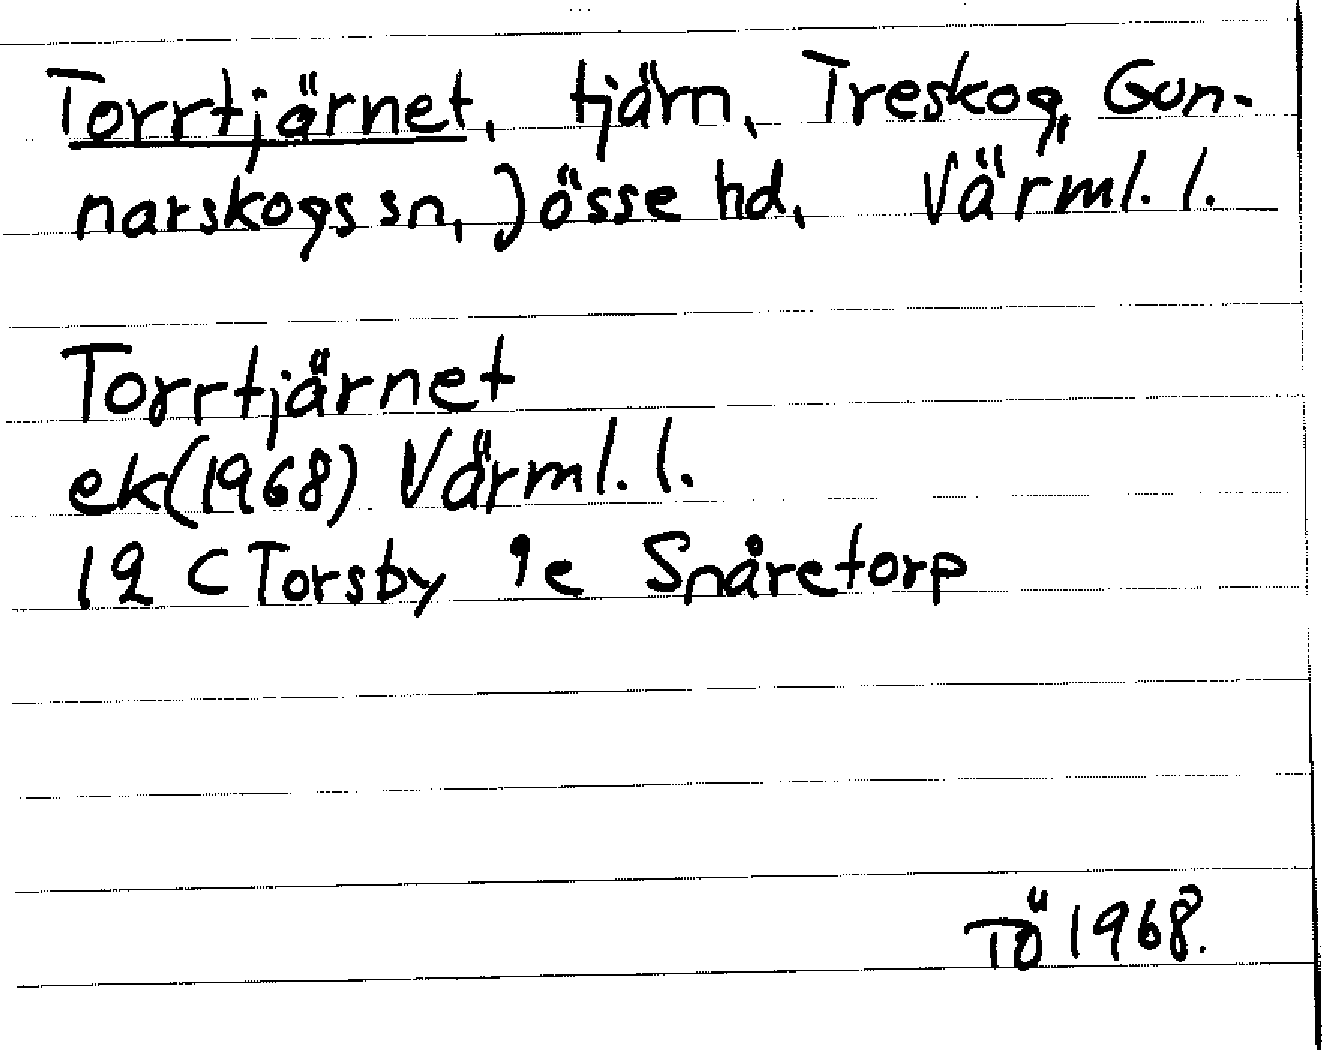 Torrtjärnet, tjärn, Treskog, Gun-
narskogs sn, Jösse hd, Värml. l.
Torrtjärnet
ek(1968) Värml. l.
12 C Torsby 1e Snåretorp
TÖ 1968.